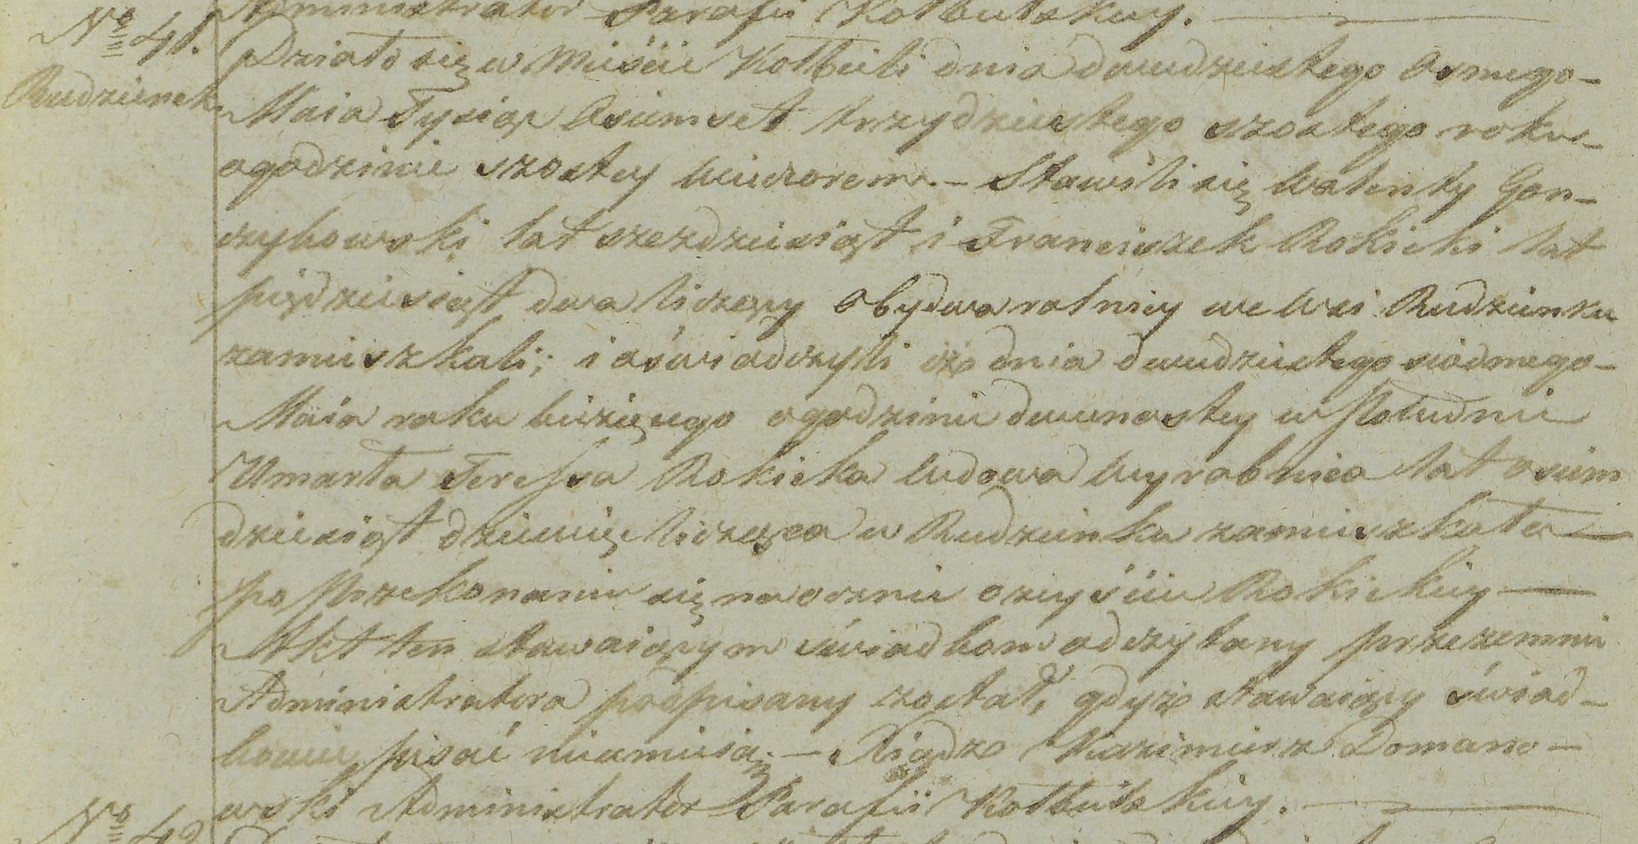 Administrator Parafii Kołbielskiey.
No 41.
Rudzienek
Działo się w Mieście Kołbieli dnia dwudziestego osmego
Maia Tysiąc Osiemset trzydziestego szostego roku
ogodzinie szostey wieczorem. – Stawili się Walenty Gon-
czykowski lat szezdziesiąt i Franciszek Rokicki lat
pięćdziesiąt dwa liczący obydwa rolnicy we wsi Rudzienku
zamieszkali; i oświadczyli iż dnia dwudziestego siodmego
Maia roku bieżącego ogodzinie dwunastey w południe
Umarła Teressa Rokicka wdowa wyrobnica lat osiem
dziesiąt dziewięć licząca w Rudzienku zamieszkała
po przekonaniu się naocznie ozeyściu Rokickiey
Akt ten stawaiącym świadkom odczytany przezemnie
Administratora podpisany został, gdyż stawaiący świad-
kowie pisać nieumieią. – Xiądz Kazimierz Domano-
wski Administrator Parafii Kołbielskiey.
No 42